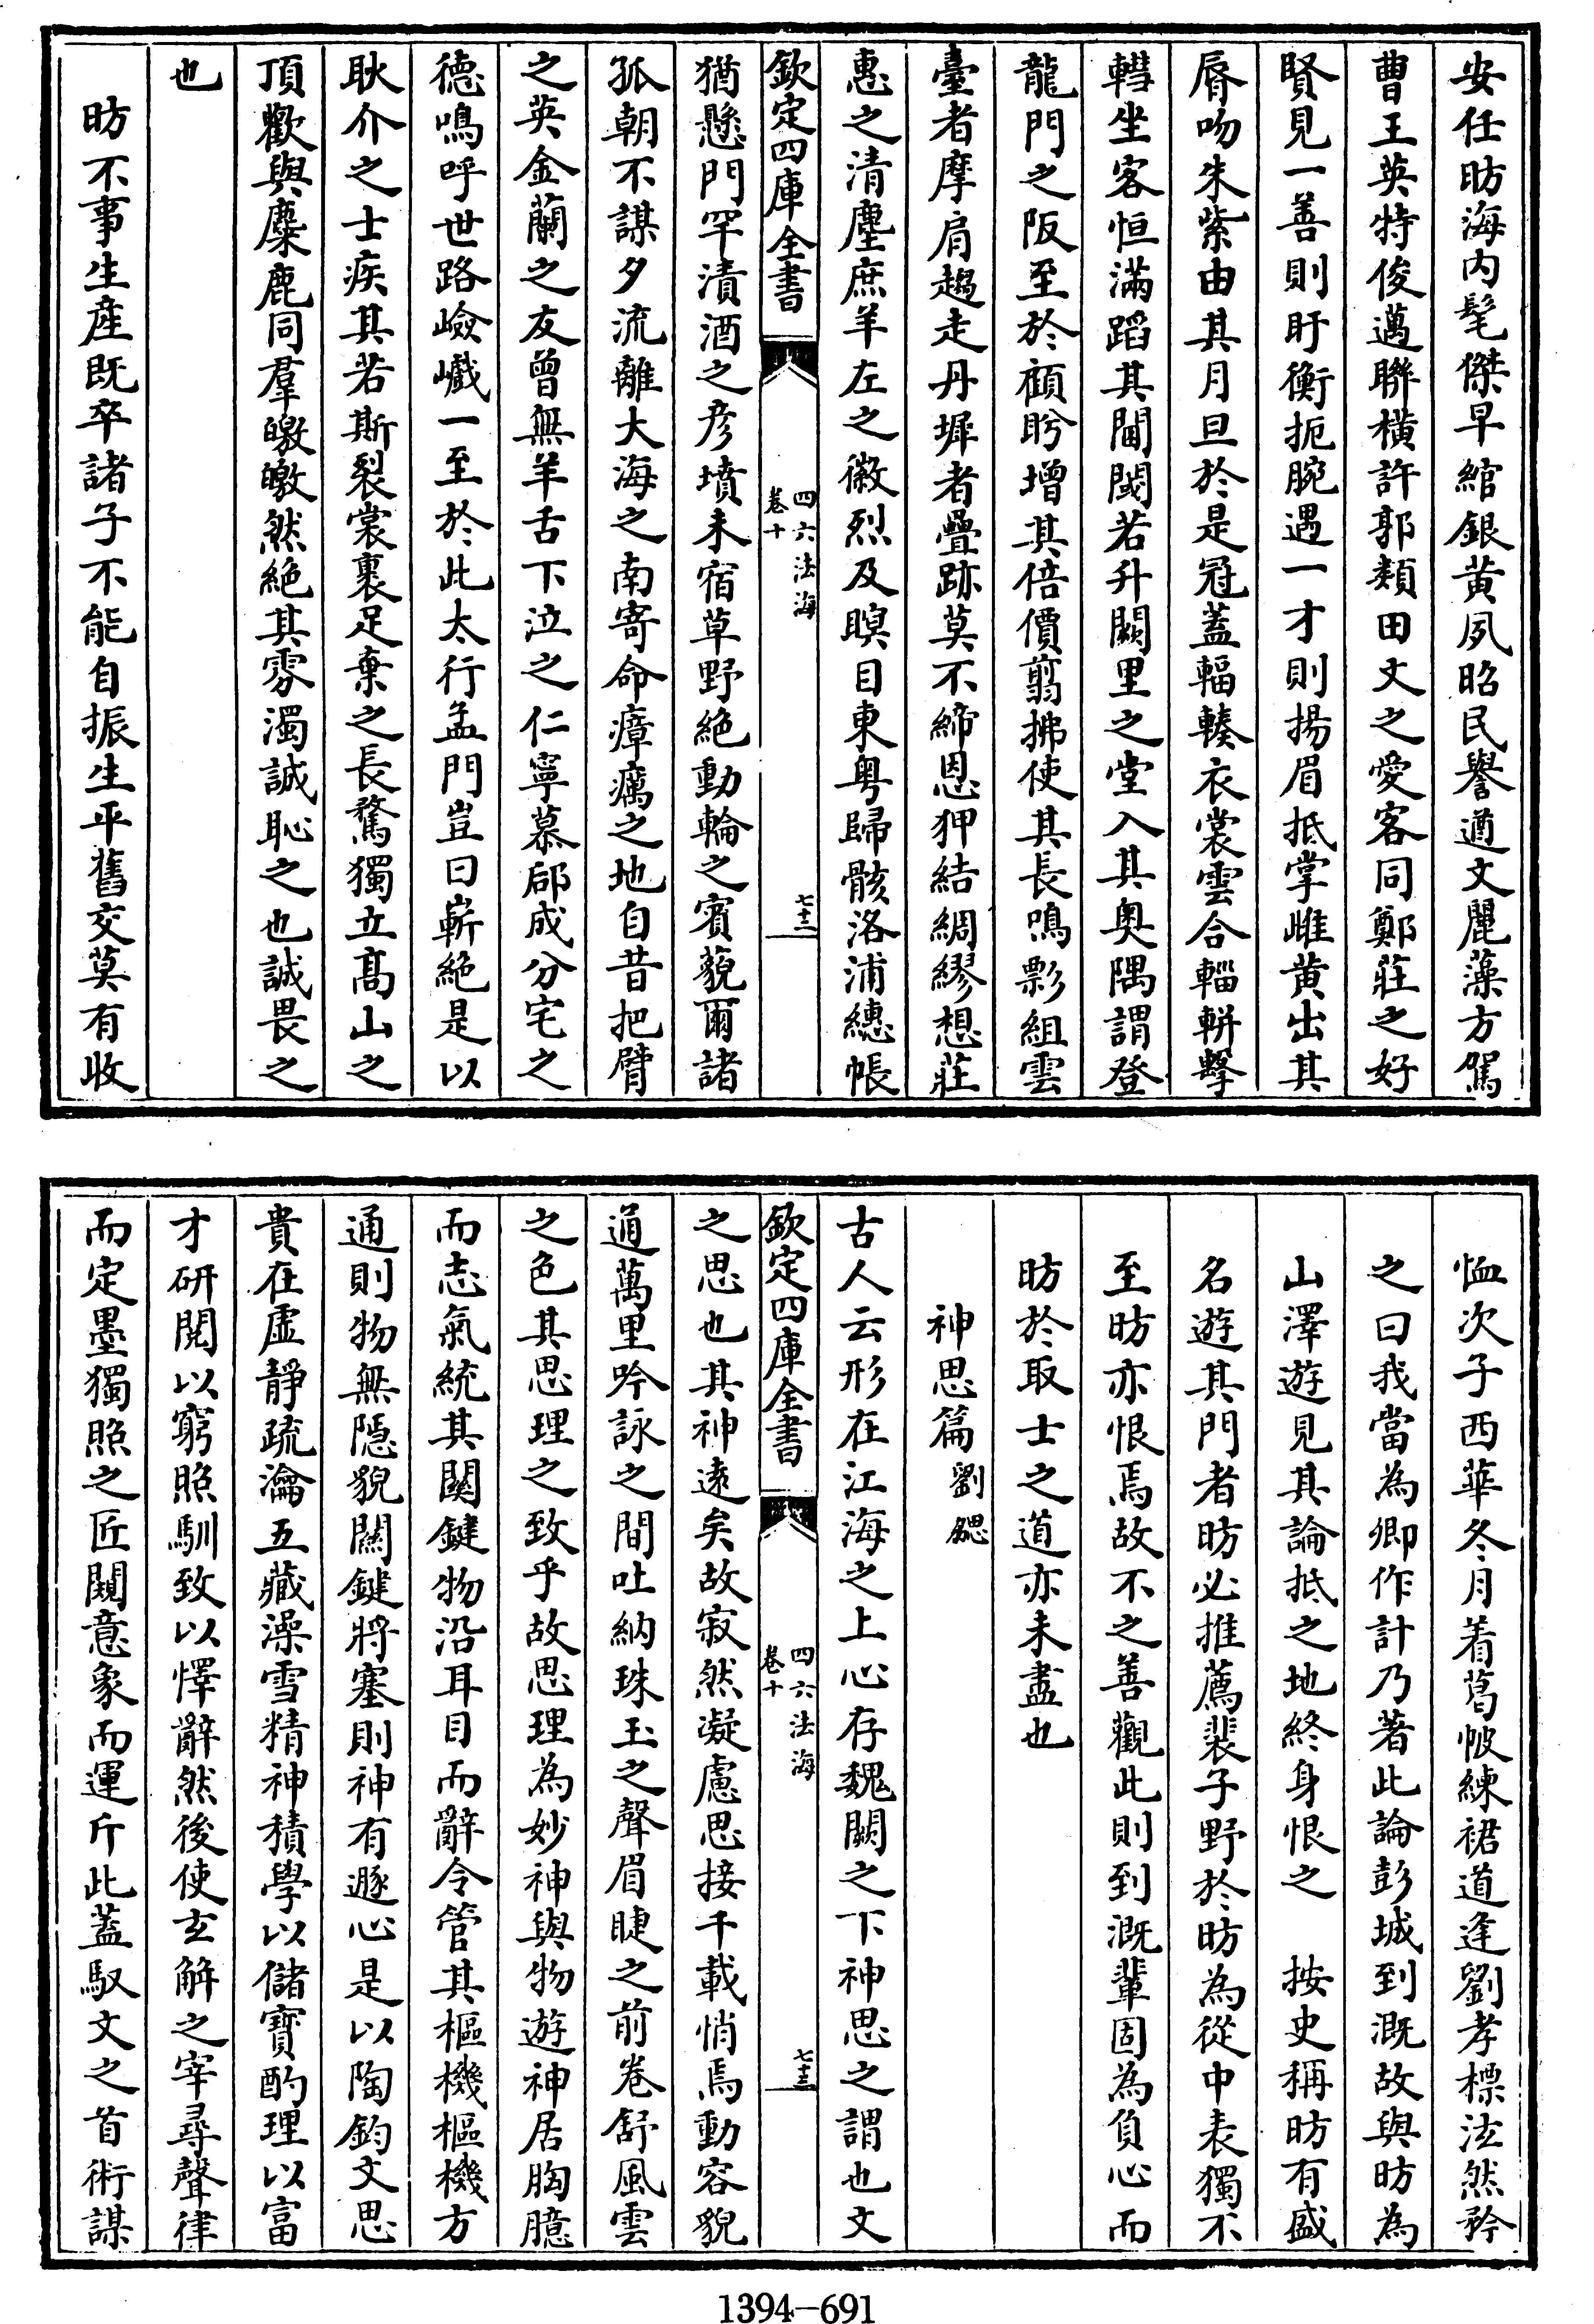 安任昉海内髦傑早綰銀黄夙昭民譽遒文麗藻方駕
曹王英特俊邁聯横許郭類田文之愛客同鄭莊之好
賢見一善則盱衡扼腕遇一才則揚眉抵掌雌黄出其
脣吻朱紫由其月旦於是冠蓋輻輳衣裳雲合輜軿擊
轊坐客恒滿蹈其閫閾若升闕里之堂入其奥隅謂登
龍門之阪至於顧盼增其倍價翦拂使其長鳴影組雲
臺者摩肩趨走丹墀者疊跡莫不締恩狎結綢繆想莊
惠之清塵庶羊左之徽烈及瞑目東粤歸骸洛浦繐帳
欽定四庫全書
四六法海
卷十
七十二
猶懸門罕漬酒之彦墳未宿草野絶動輪之賓藐爾諸
孤朝不謀夕流離大海之南寄命瘴癘之地自昔把臂
之英金蘭之友曾無羊舌下泣之仁寧慕郈成分宅之
德嗚呼世路嶮巇一至於此太行孟門豈曰嶄絶是以
耿介之士疾其若斯裂裳裹足棄之長騖獨立髙山之
頂歡與麋鹿同羣皦皦然絶其雰濁誠恥之也誠畏之
也
昉不事生産既卒諸子不能自振生平舊交莫有收
恤次子西華冬月着葛帔練裙道逢劉孝標泫然矜
之曰我當為卿作計乃著此論彭城到溉故與昉為
山澤遊見其論抵之地終身恨之 按史稱昉有盛
名遊其門者昉必推薦裴子野於昉為從中表獨不
至昉亦恨焉故不之善觀此則到溉輩固為負心而
昉於取士之道亦未盡也
神思篇 劉勰
古人云形在江海之上心存魏闕之下神思之謂也文
欽定四庫全書
四六法海
卷十
七十三
之思也其神遠矣故寂然凝慮思接千載悄焉動容貌
通萬里吟詠之間吐納珠玉之聲眉睫之前卷舒風雲
之色其思理之致乎故思理為妙神與物遊神居胸臆
而志氣統其關鍵物沿耳目而辭令管其樞機樞機方
通則物無隱貌關鍵將塞則神有遯心是以陶鈞文思
貴在虚靜疏瀹五藏澡雪精神積學以儲寳酌理以富
才研閲以窮照馴致以懌辭然後使玄解之宰尋聲律
而定墨獨照之匠闚意象而運斤此蓋馭文之首術謀
1394-691